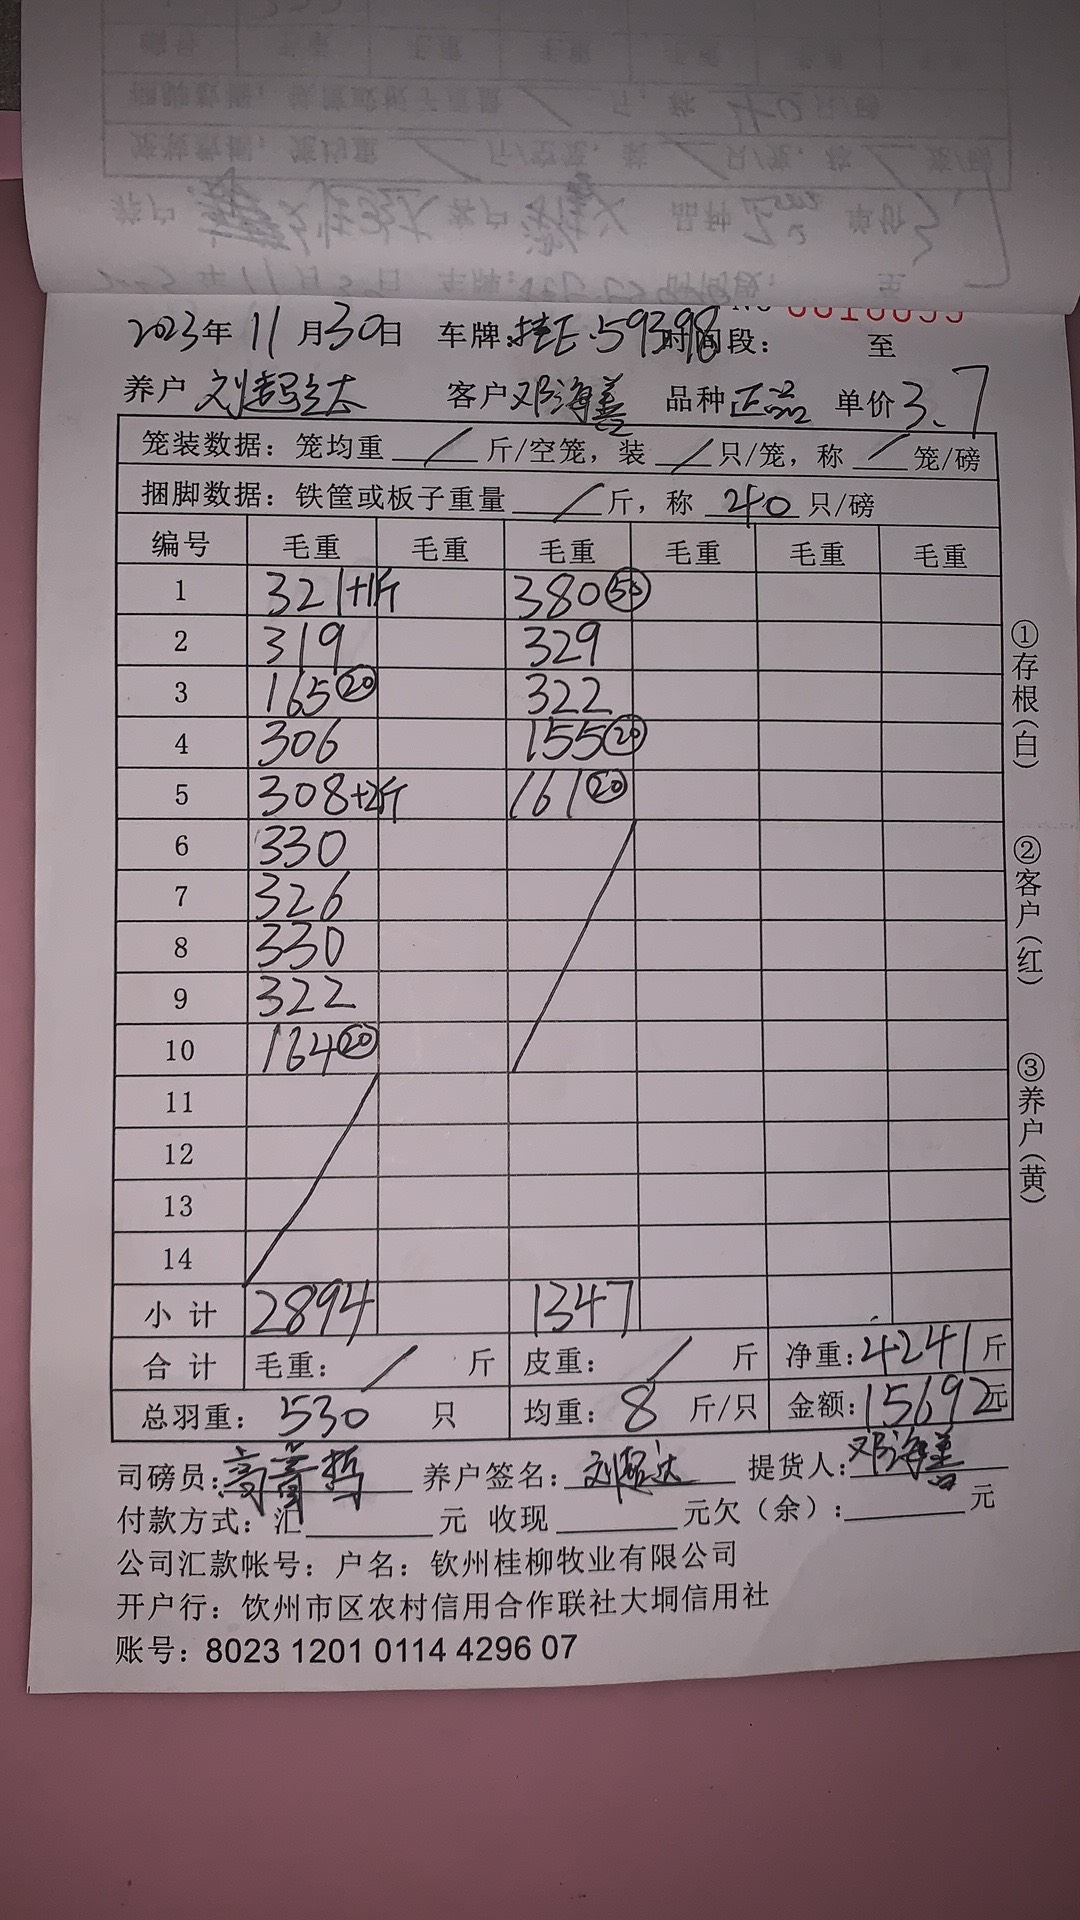 2023年 11月30日 车牌:桂E·59398 时间段: 至
养户 刘超达 客户 邓海善 品种 正品 单价 3.7
笼装数据: 笼均重 / 斤/空笼, 装 / 只/笼, 称 / 笼/磅
捆脚数据: 铁筐或板子重量 / 斤, 称 40 只/磅
编号 毛重 毛重 毛重 毛重 毛重 毛重
1 321+1斤 380 50
2 319 329
3 165 20 322
4 306 155 20
5 308+2斤 161 20
6 330
7 326
8 330
9 322
10 164 20
11
12
13
14
小 计 2894 1347
合 计 毛重: / 斤 皮重: / 斤 净重: 4241 斤
总羽重: 530 只 均重: 8 斤/只 金额: 15692元
司磅员: 养户签名: 刘超达 提货人: 邓海善
付款方式: 汇 元 收现 元欠(余): 元
公司汇款帐号: 户名: 钦州桂柳牧业有限公司
开户行: 饮州市区农村信用合作联社大垌信用社
账号: 8023 1201 0114 4296 07
①存根(白)
②客户(红)
③养户(黄)